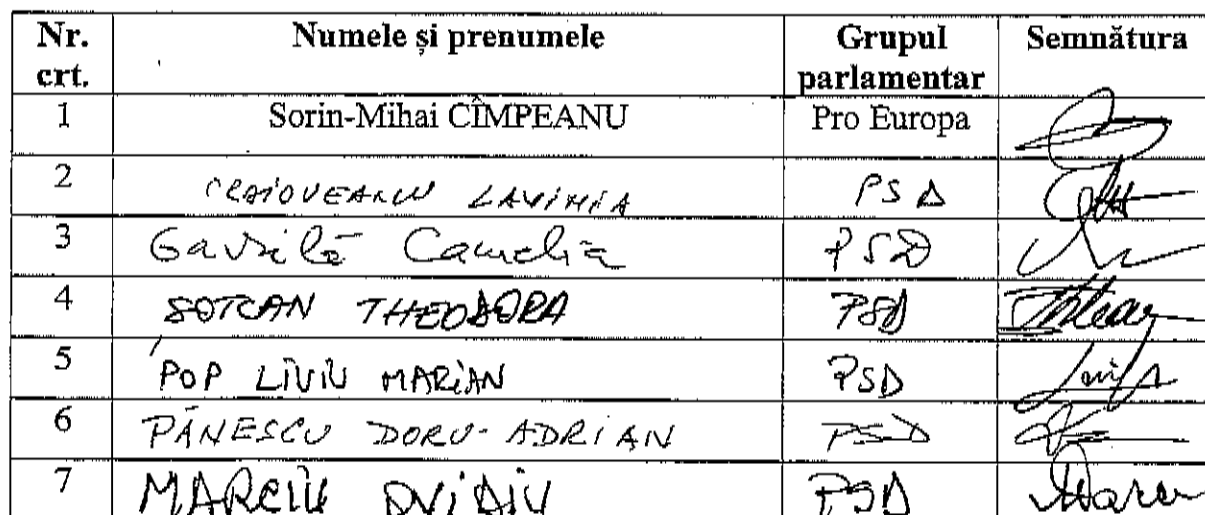 Nr. crt. Numele și prenumele Grupul parlamentar Semnătura
1 Sorin-Mihai CÎMPEANU Pro Europa
2 CRAIOVEANU LAVINIA PSD
3 Gavrilă Camelia PSD
4 SOTCAN THEODORA PSD
5 POP LIVIU MARIAN PSD
6 PĂNESCU DORU-ADRIAN PSD
7 MARCIU OVIDIU PSD